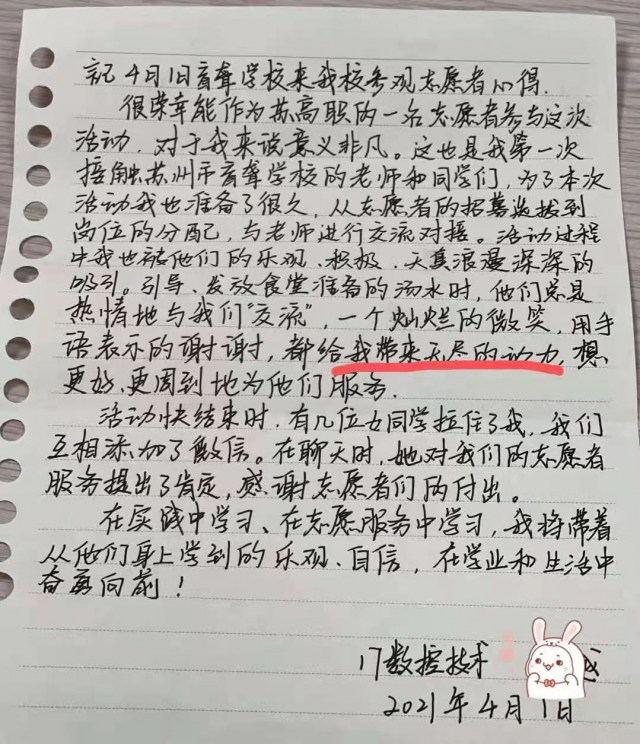 记4月1日盲聋学校来我校参观志愿者心得.
很荣幸能作为苏高职的一名志愿者参与这次
活动，对于我来说意义非凡。这也是我第一次
接触苏州市盲聋学校的老师和同学们，为了本次
活动我也准备了很久，从志愿者的招募选拔到
岗位的分配，与老师进行交流对接。活动过程
中我也被他们的乐观、积极、天真浪漫深深的
吸引。引导、发放食堂准备的汤水时，他们总是
热情地与我们“交流”，一个灿烂的微笑，用手
语表示的谢谢，都给我带来无尽的动力，想
更好、更周到地为他们服务.
活动快结束时，有几位女同学拉住了我，我们
互相添加了微信。在聊天时，她对我们的志愿者
服务提出了肯定，感谢志愿者们的付出。
在实践中学习、在志愿服务中学习，我将带着
从他们身上学到的乐观、自信，在学业和生活中
奋勇向前！
17数控技术
2021年4月1日